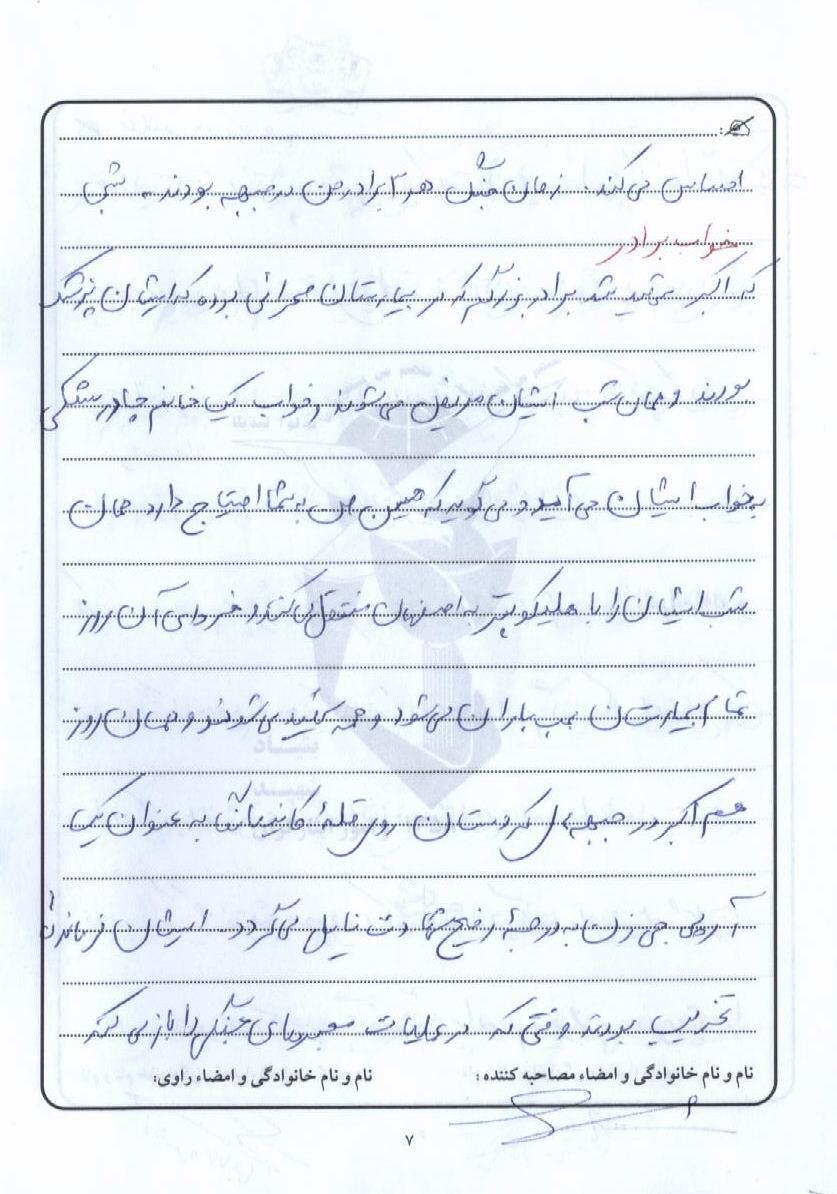 احساس می کند. زمان جنگ هر ۲ برادر من در جبهه بودند شبی
خواب برادر
که اکبر شهید شد برادر بزرگم که در بیمارستان صحرائی بوده که ایشان پزشک
بودند و همان شب ایشان مریض می شوند و خواب یک خانم چادر مشکی
به خواب ایشان می آید و می گوید که همین الان به شما احتیاج دارد همان
شب ایشان را با هلیکوپتر به اصفهان منتقل می کنند و فردای آن روز
تمام بیمارستان بمب باران می شود و همه شهید می شوند و همان روز
هم اکبر در جبهه کردستان روی قله به عنوان یک
آرپی جی زن به درجه رفیع شهادت نایل می گردد. ایشان فرمانده
تخریب بودند وقتی که در عملیات معبرهای جنگی را باز می کند
نام و نام خانوادگی و امضاء مصاحبه کننده : نام و نام خانوادگی و امضاء راوی:
۷